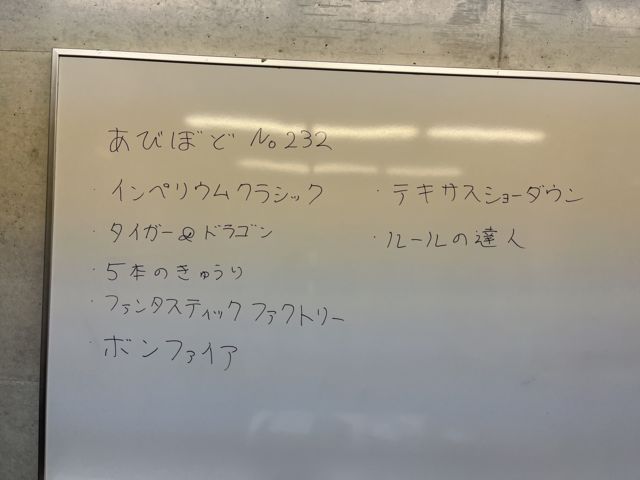 あびぼど No232
・インペリウムクラシック
・タイガー&ドラゴン
・5本のきゅうり
・ファンタスティックファクトリー
・ボンファイア
・テキサスショーダウン
・ルールの達人